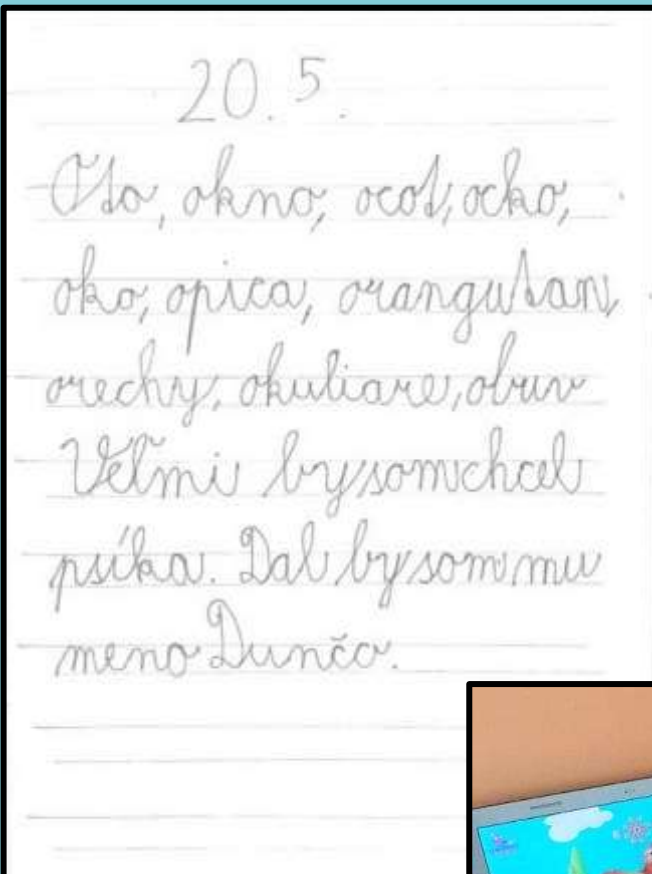 20.5.
Oto, okno, ocot, ocko,
oko, opica, orangutan,
orechy, okuliare, obuv
Veľmi by som chcel
psíka. Dal by som mu
meno Dunčo.